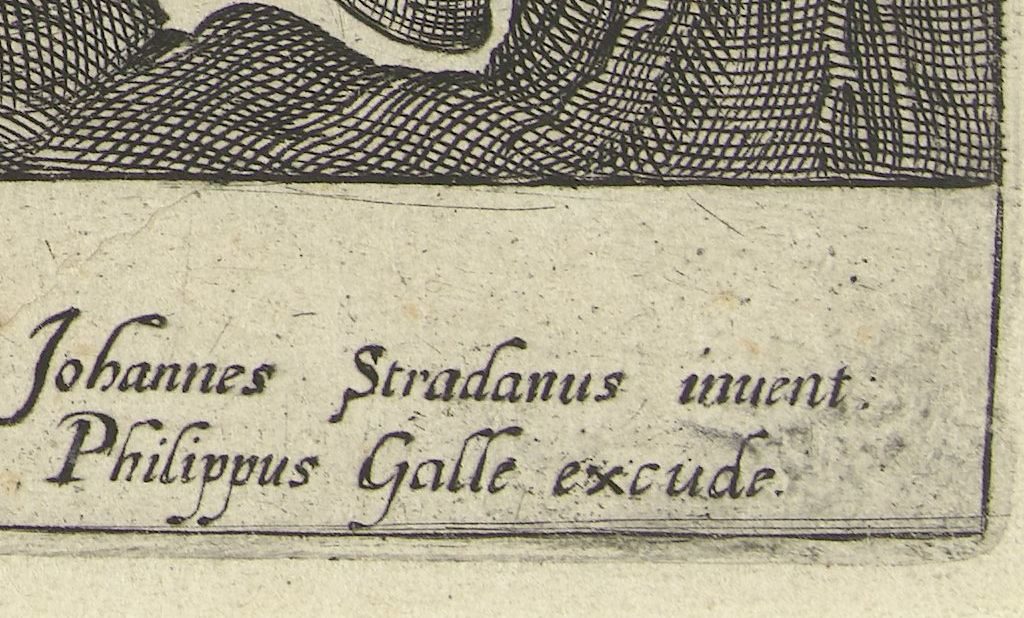 Johannes Stradanus invent.
Philippus Galle excude.